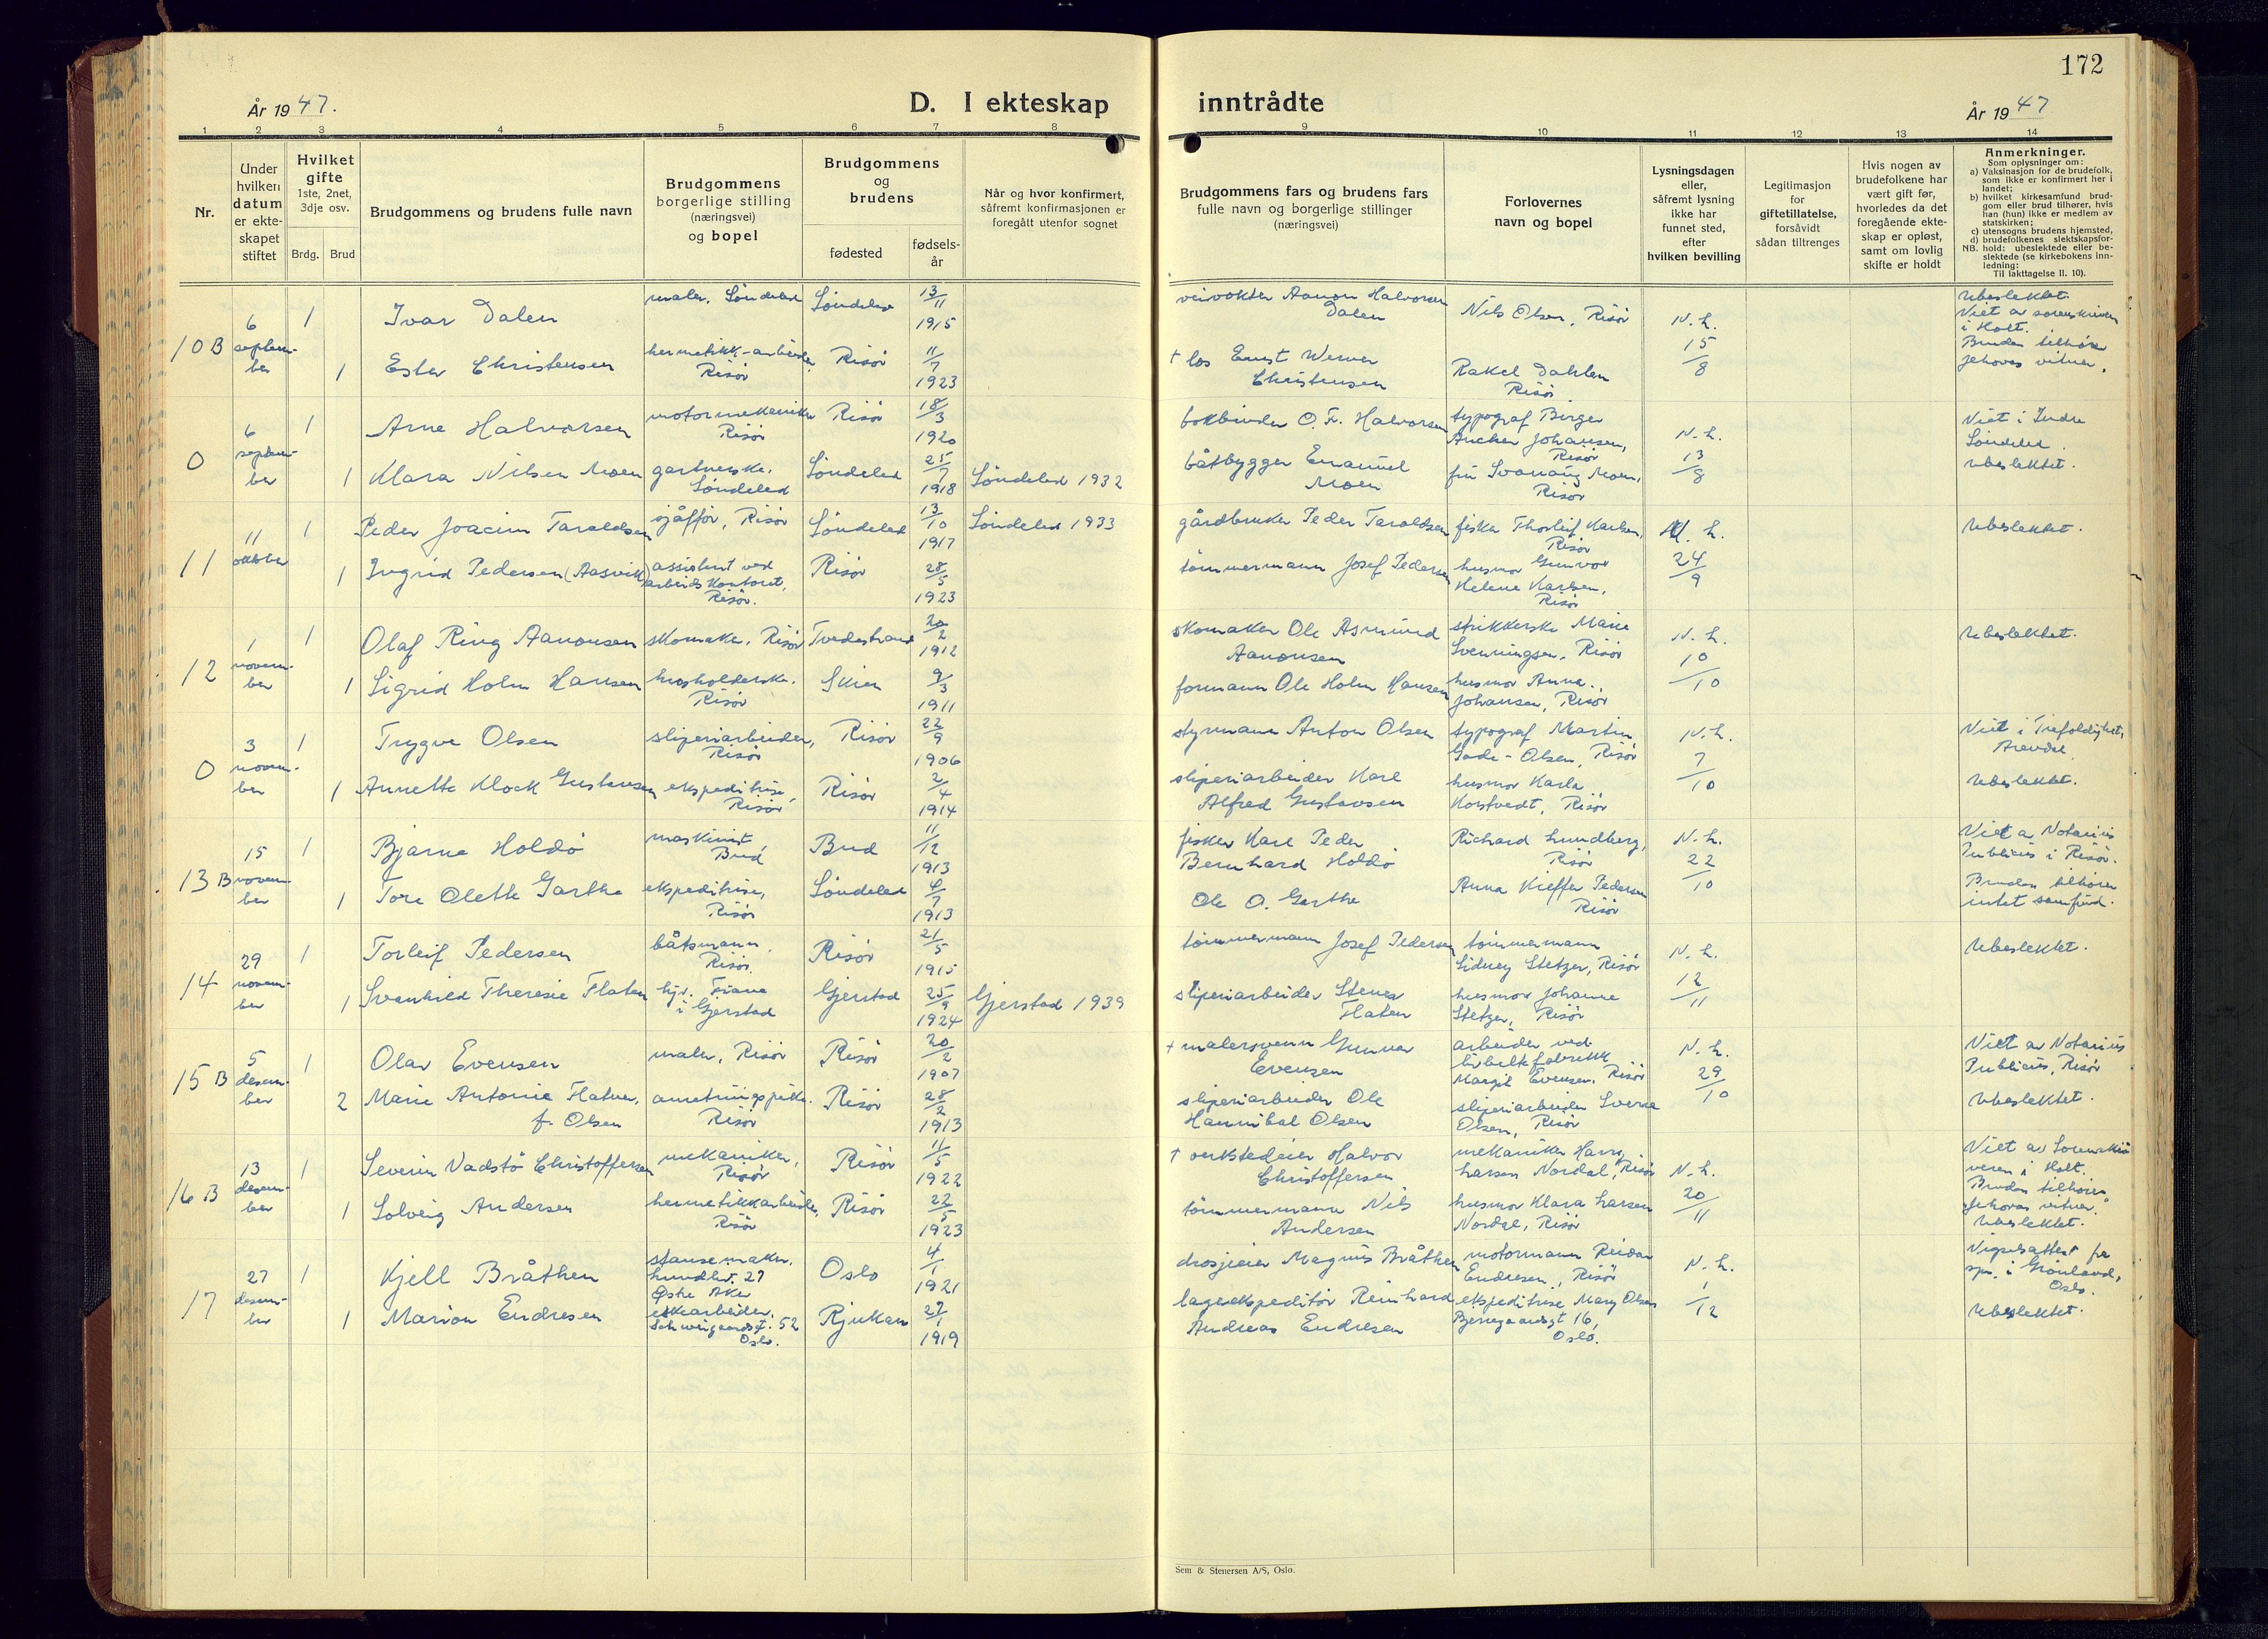 172
År 1947.
D. I ekteskap
inntrådte
År 1947
1 2 3 4 5 6 7 8 9 10 11 12 13 14
Nr.
Under hvilken datum er ekteskapet stiftet
Hvilket gifte
1ste, 2net, 3dje osv.
Brdg. Brud
Brudgommens og brudens fulle navn
Brudgommens
borgerlige stilling
(næringsvei)
og bopel
Brudgommens
og
brudens
fødested
fødsels-
år
Når og hvor konfirmert,
såfremt konfirmasjonen er
foregått utenfor sognet
Brudgommens fars og brudens fars
fulle navn og borgerlige stillinger
(næringsvei)
Forlovernes
navn og bopel
Lysningsdagen
eller,
såfremt lysning
ikke har
funnet sted,
efter
hvilken bevilling
Legitimasjon
for
giftetillatelse,
forsåvidt
sådan tiltrenges
Hvis nogen av
brudefolkene har
vært gift før,
hvorledes da det
foregående ekte-
skap er opløst,
samt om lovlig
skifte er holdt
Anmerkninger.
Som oplysninger om:
a) Vaksinasjon for de brudefolk,
som ikke er konfirmert her i
landet;
b) hvilket kirkesamfund brud-
gom eller brud tilhører, hvis
han (hun) ikke er medlem av
statskirken;
c) utensogns brudens hjemsted,
d) brudefolkenes slektskapsfor-
NB. hold: ubeslektede eller be-
slektede (se kirkebokens inn-
ledning:
Til iakttagelse II. 10).
10 B
6
septem-
ber
1
Ivar Dalen
maler, Söndeled
Söndeled
13/11
1915
veivokter Aanon Halvorsen
Dalen
Nils Olsen, Risör
N. L.
15/8
Ubeslektet.
Viet av sorenskriveren
i Holt.
Bruden tilhörer
Jehovas vitner.
1
Ester Christensen
hermetikk-arbeider
Risör
Risör
11/7
1923
† los Ernst Werner
Christensen
Rakel Dahlen
Risör
0
6
septem-
ber
1
Arne Halvorsen
motormekaniker
Risör
Risör
18/3
1920
bokbinder O. F. Halvorsen
typograf Birger
Ancher Johansen,
Risör
N. L.
13/8
Viet i Indre
Söndeled.
Ubeslektet.
1
Klara Nilsen Moen
gartnerske,
Söndeled
Söndeled
25/7
1918
Söndeled 1932
båtbygger Enanuel
Moen
frú Svanaug Moen,
Risör
11
11
oktober
1
Peder Joacim Taraldsen
sjåfför, Risör
Söndeled
13/10
1917
Söndeled 1933
gårdbruker Peder Taraldsen
fisker Thorleif Karlsen,
Risör
N. L.
24/9
Ubeslektet.
1
Ingrid Pedersen (Aasvik)
assistent ved
arbeidskontoret,
Risör.
Risör
28/5
1923
tömmermann Josef Pedersen
husmor Gunvor
Helene Karlsen,
Risör
12
1
novem-
ber
1
Olaf Ring Aanonsen
skomaker, Risör
Tvedestrand
20/2
1912
skomaker Ole Asmund
Aanonsen
strikkerske Marie
Svenningsen, Risör
N. L.
10/10
Ubeslektet.
1
Sigrid Holm Hansen
husholderske,
Risör
Skien
9/3
1911
formann Ole Holm Hansen
husmor Anna
Johansen, Risör
0
3
novem-
ber
1
Trygve Olsen
sliperiarbeider,
Risör
Risör
22/9
1906
styrmann Anton Olsen
typograf Martin
Gade-Olsen, Risör
N. L.
7/10
Viet i Trefoldighet,
Arendal
Ubeslektet.
1
Annette Klock Gustavsen
ekspeditrise,
Risör
Risör
2/4
1914
sliperiarbeider Karl
Alfred Gustavsen
husmor Karla
Korstvedt, Risör
13 B
15
novem-
ber
1
Bjarne Holdö
maskinist
Bud
Bud
11/12
1913
fisker Karl Peder
Bernhard Holdö
Richard Lundberg,
Risör
N. L.
22/10
Viet a Notarius
Publicus i Risör.
Bruden tilhörer
intet samfund.
1
Tore Olette Garthe
ekspeditrise,
Risör
Söndeled
4/7
1913
Ole O. Garthe
Anna Kieffer Pedersen
Risör
14
29
novem-
ber
1
Torleif Pedersen
båtsmann,
Risör
Risör
21/5
1915
tömmermann Josef Pedersen
tömmermann
Sidney Stetzer, Risör
N. L.
12/11
Ubeslektet.
1
Svanhild Theresie Flaten
hj. Fiane
i Gjerstad
Gjerstad
25/9
1924
Gjerstad 1939
sliperiarbeider Stener
Flaten
husmor Johanne
Stetzer, Risör
15 B
5
desem-
ber
1
Olav Evensen
maler, Risör
Risör
20/2
1907
† malersvenn Gunnar
Evensen
arbeider ved
livbeltfabrikk
Margit Evensen, Risör
N. L.
29/10
Viet av Notarius
Publicus, Risör
Ubeslektet.
2
Marie Antonie Flatner,
f. Olsen
Risör
Risör
28/2
1913
sliperiarbeider Ole
Hannibal Olsen
sliperiarbeider Sverre
Olsen, Risör
16 B
13
desem-
ber
1
Severin Vadstö Christoffersen
mekaniker,
Risör
Risör
11/5
1922
† verkstedeier Halvor
Christoffersen
mekaniker Harry
Larsen Nordal, Risör
N. L.
20/11
Viet av Sorenskri-
veren i Holt.
Bruden tilhörer
"Jehovas vitner."
Ubeslektet.
1
Solveig Andersen
hermetikkarbeider,
Risör
Risör
22/5
1923
tömmermann Nils
Andersen
husmor Klara Larsen
Nordal, Risör
17
27
desem-
ber
1
Kjell Bråthen
stansemaker,
Lundbt. 27
Östre Aker
Oslo
4/1
1921
drosjeeier Magnus Bråthen
motormann Reidar
Endresen, Risör
N. L.
1/12
Vigselsattest fra
spr. i Grönland,
Oslo.
Ubeslektet.
1
Marion Endresen
eskearbeider,
Schweigaardsgt. 52
Oslo.
Rjukan
27/1
1919
lagerekspeditör Reinhard
Andreas Endresen
ekspeditrise Mary Olsen
Bjerregaardsgt 16,
Oslo.
Sem & Stenersen A/S, Oslo.